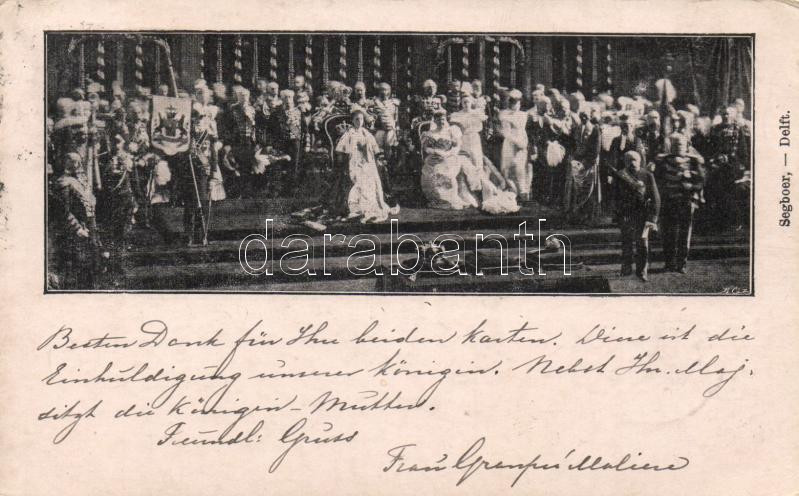 darabanth
Segboer, — Delft.
Besten Dank für Ihre beiden Karten. Diese ist die
Einhuldigung unserer Königin. Nebst Ihr. Maj.
sitzt die Königin-Mutter.
Freundl: Gruss
Frau